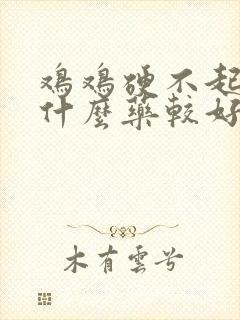 鸡鸡硬不起
什麼藥較好
木有雲兮